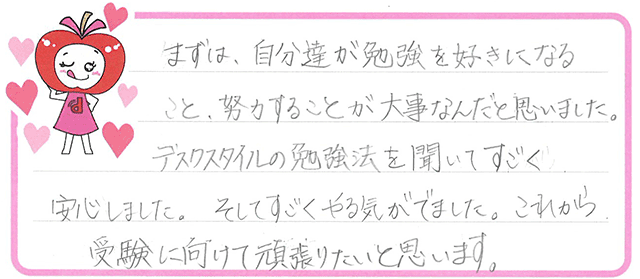 まずは、自分達が勉強を好きになる
こと、努力することが大事なんだと思いました。
デスクスタイルの勉強法を聞いてすごく
安心しました。そしてすごくやる気がでました。これから
受験に向けて頑張りたいと思います。
d